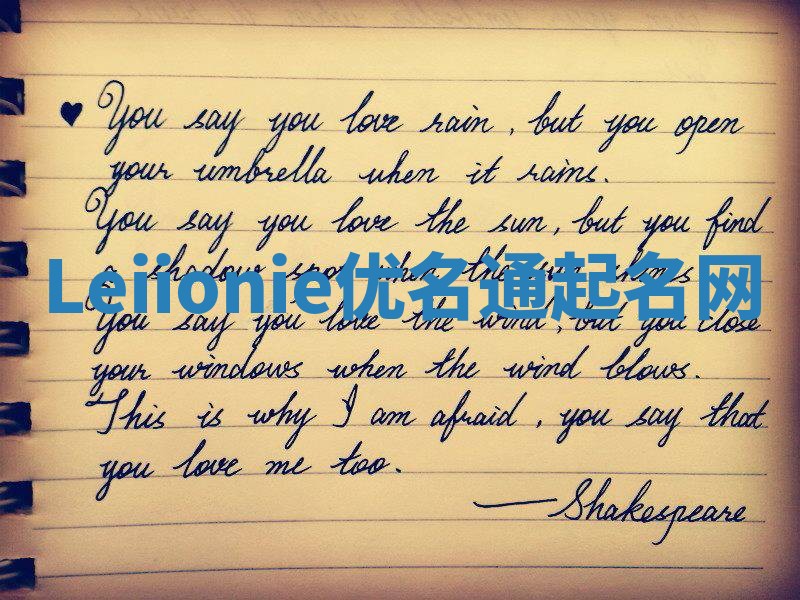 ♥ You say you love rain, but you open
your umbrella when it rains.
You say you love the sun, but you find
a shadow spot when the sun shines
Leiionie优名通起名网
You say you love the wind, but you close
your windows when the wind blows.
This is why I am afraid, you say that
you love me too.
—Shakespeare